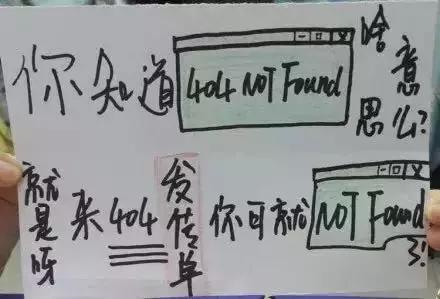 你知道 404 NOT Found 啥意思么?
就是呀 来404 发传单 你可就 NOT Found 了!